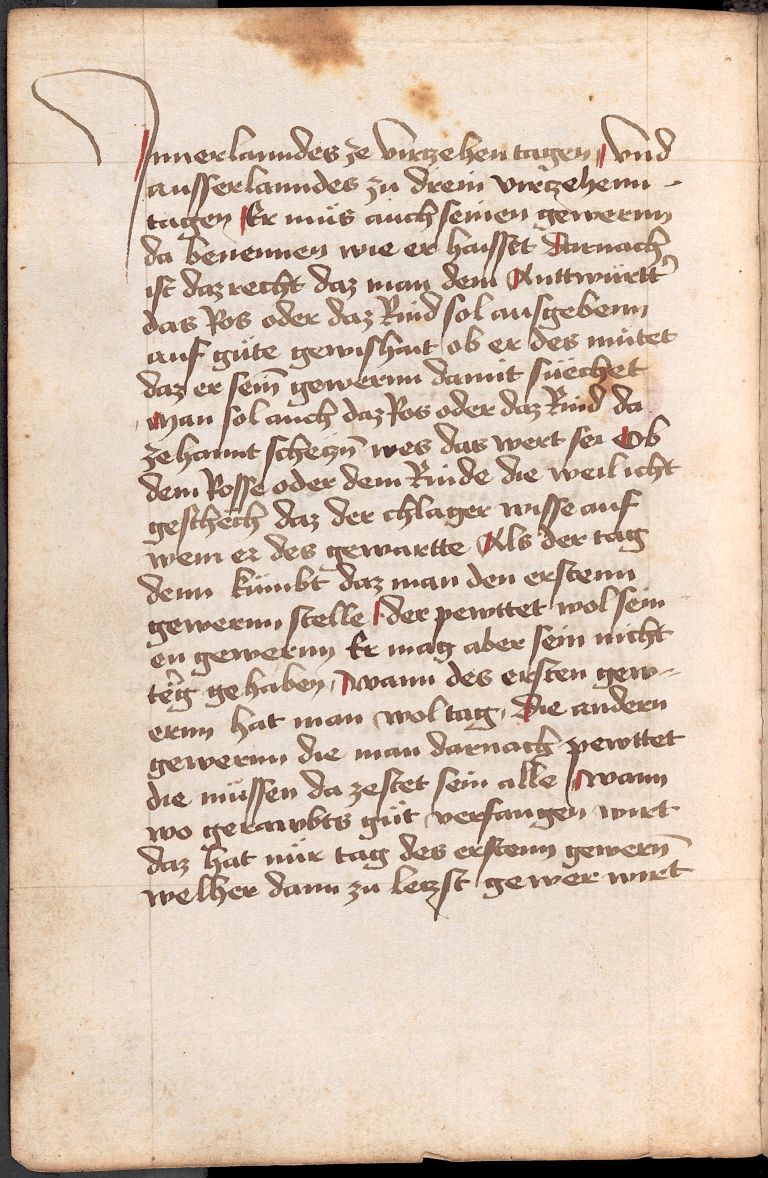 Innerlanndes ze virtzehen tagen Vnd
ausserlanndes zu drein virtzehenn -
tagen Er můs auch seinen gewernn
da benennen wie er haisset Darnach
ist daz recht daz man dem Anttwürtt
das Ros oder daz Rind sol ausgebenn
auf güte gewishait ob er des můtet
daz er sein̄ gewernn damit süechet
Man sol auch daz Ros oder daz Rind da
ze hannt scheczn̄ wes das wert sei Ob
dem Rosse oder dem Rinde die weil icht
geschech daz der chlager wisse auf
wem er des gewartte Als der tag
denn kůmbt daz man den erstenn
gewernn stelle der pewttet wol sein
en gewernn Er mag aber sein nicht
têg gehaben, wann des ersten gew-
ernn hat man wol tag, Die andern
gewernn die man darnach pewttet
die müssen da zestet sein alle wann
wo gerawbts gůt verfangen wirt
daz hat nůr tag des erstenn gewern̄
welher dann zu letzst gewer wirt